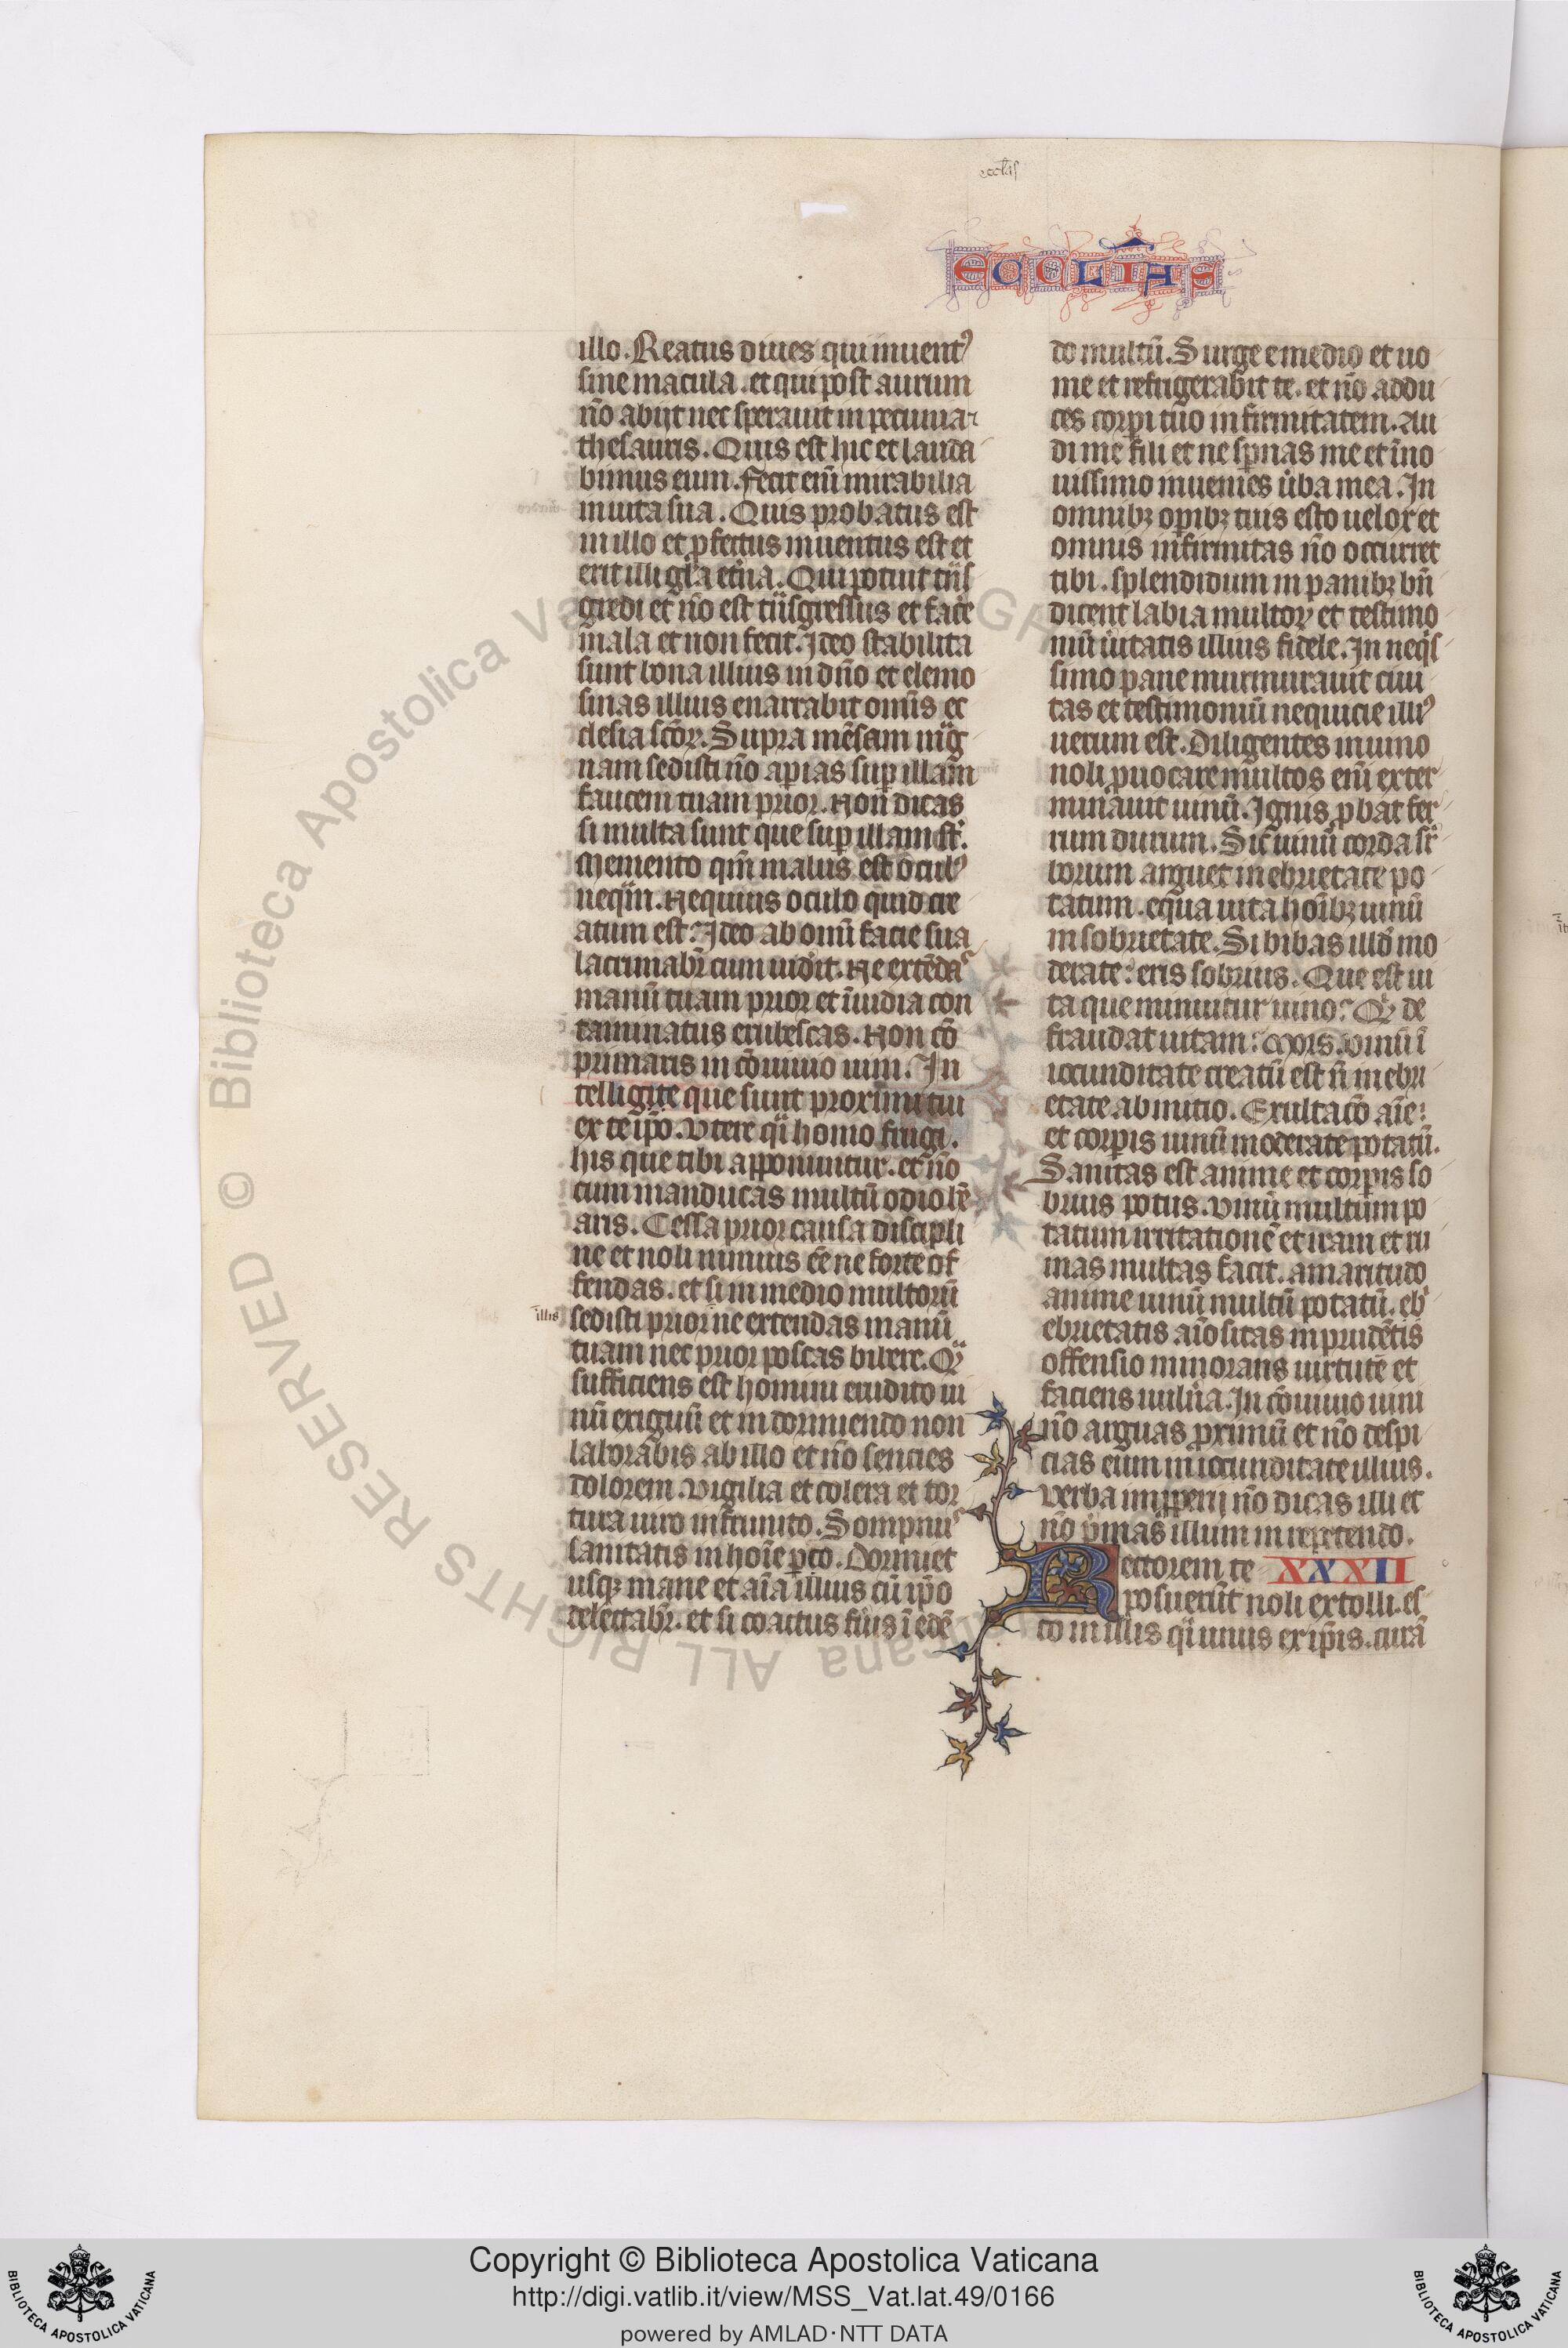 eccl'is
ECCLIAS
illo. Beatus diues qui inuent9
sine macula. et qui post aurum
nõ abijt nec sperauit in pecunia ⁊
thesauris. Quis est hic et lauda
bimus eum. fecit enĩ mirabilia
in uita sua. Quis probatus est
in illo et ꝑfectus inuentus est et
erit illi gl'a et'na. Qui potuit t̃ns
gredi et nõ est t̃nsgressus et face
mala et non fecit. Ideo stabilita
sunt bona illius in dño et elemo
sinas illius enarrabit omñs ec
clesia sc̃oꝝ. Supra mẽsam mag̃
nam sedisti nõ aꝑias suꝑ illam
faucem tuam prior. Non dicas
si multa sunt que suꝑ illam st̃.
Memento qm̃ malus est ocul9
neq̃m. Nequius oculo quid cre
atum est? Ideo ab omĩ facie sua
lacrimabr̃ cum uid'it. Ne extẽdas
manũ tuam prior et ĩuidia con
taminatus erubescas. Non cõ
primaris in cõuiuio uini. In
tellige que sunt proximi tui
ex te ip̃o. Utere q̃i homo frugi.
his que tibi apponuntur. et nõ
cum manducas multũ odio hẽ
aris. Cessa prior causa discipli
ne et noli nimius eẽ ne forte of
fendas. et si in medio multorũ
illis
sedisti prior ne extendas manũ
tuam nec prior poscas bibere. Qͣ
sufficiens est homini erudito ui
nũ exiguũ et in dormiendo non
laborabis ab illo et nõ senties
dolorem. Vigilia et colera et tor
tura uiro infrunito. Sompnus
sanitatis in hoĩe ꝑco. Dormiet
usqꝫ mane et aĩa illius cũ ip̃o
delectabr̃. et si coactus fũis ĩ edẽ
do multũ. Surge e medio et uo
me et refrigerabit te. et nõ addu
ces corꝑi tuo infirmitatem. Au
di me fili et ne sp̃nas me et ĩ no
uissimo inuenies ũba mea. In
omnibꝫ oꝑibꝫ tuis esto uelox et
omnis infirmitas nõ occurret
tibi. splendidum in panibꝫ bñ
dicent labia multoꝝ et testimo
niũ ũitatis illius fidele. In neq̃s
simo pane murmurauit ciui
tas et testimoniũ nequicie illi9
uerum est. Diligentes in uino
noli ꝓuocare multos enĩ exter
minauit uinũ. Ignis ꝓbat fer
rum durum. Sic̃ uinũ corda suꝑ
borum arguet in ebrietate po
tatum. equa uita hoĩbꝫ uinũ
in sobrietate. Si bibas illd' mo
derate: eris sobrius. Que est ui
ta que minuitur uino? Qͥd de
fraudat uitam? Mors. Vinũ ĩ
iocunditate creatũ est ñ in ebri
etate ab initio. Exultac̃o aĩe:
et corꝑis uinũ moderate potatũ.
Sanitas est anime et corꝑis so
brius potus. Vinũ multum po
tatum irritationẽ et iram et ru
inas multas facit. amaritudo
anime uinũ multũ potatũ. eb'
ebrietatis aĩositas inprudẽtis
offensio minorans uirtutẽ et
faciens uuln'a. In cõuiuio uini
nõ arguas ꝓximũ et nõ despi
cias eum in iocunditate illius.
Verba inpꝓerij nõ dicas illi et
nõ p̃mas illum in repetendo.
Rectorem te XXXII
posuerũt noli extolli. es
to in illis q̃i unus ex ip̃is. curã
Copyright © Biblioteca Apostolica Vaticana
http://digi.vatlib.it/view/MSS_Vat.lat.49/0166
powered by AMLAD·NTT DATA
BIBLIOTECA APOSTOLICA VATICANA
BIBLIOTECA APOSTOLICA VATICANA